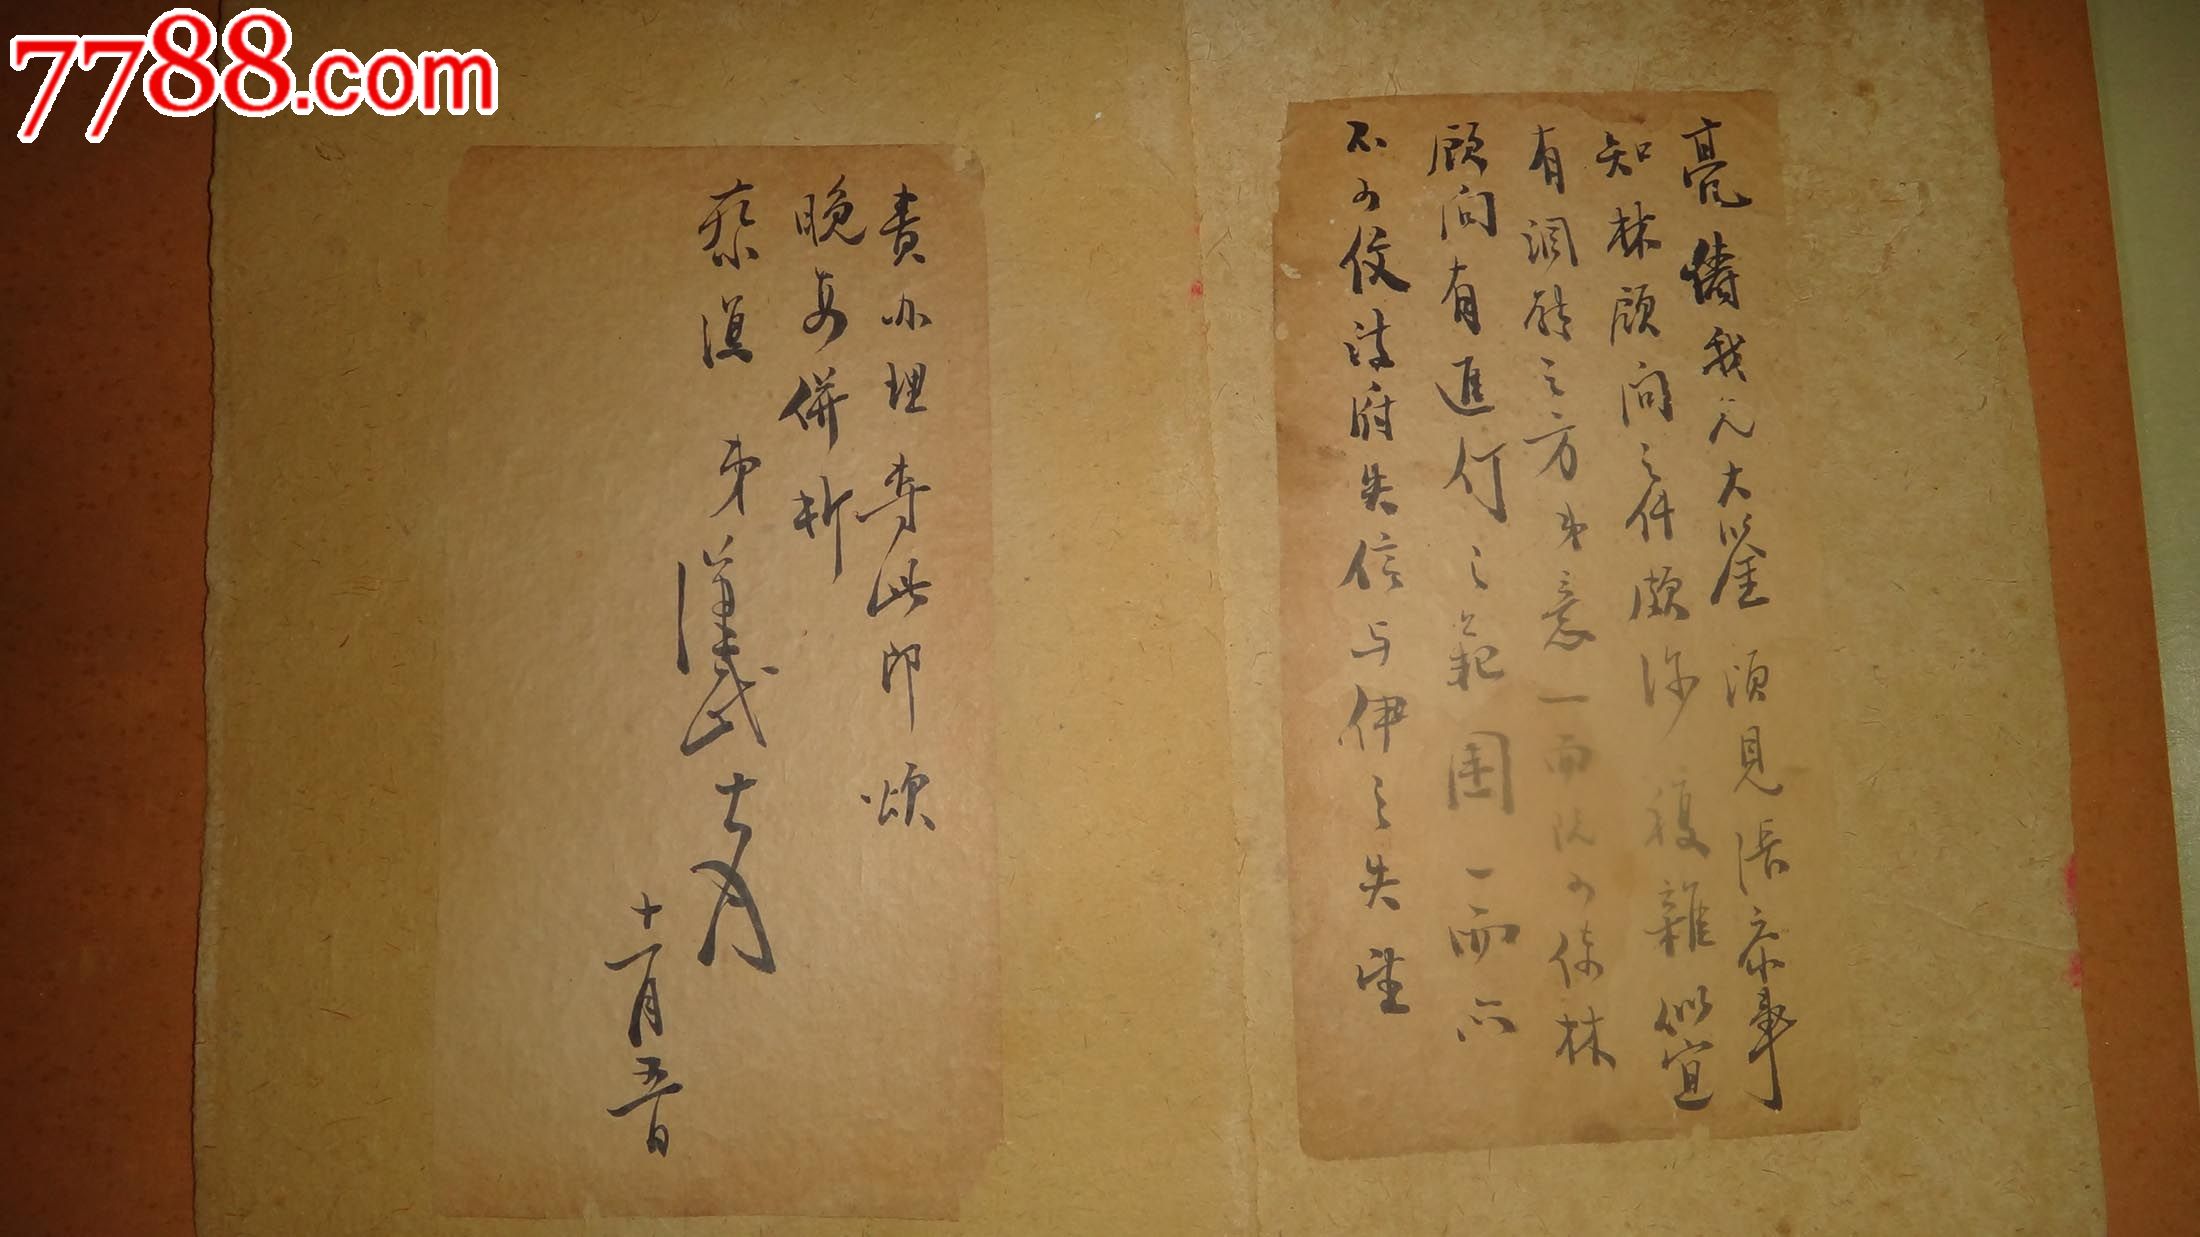 7788.com
亮儔我兄大鑒 須見張京事
知林顧問之件頗涉複雜似宜
有调融之方弟意一面既可使林
顧問有進行之範圍一面亦
不可使政府失信与伊之失望
责办理专此即頌
晚安併祈
察源 弟漢武
十月
十一月五日